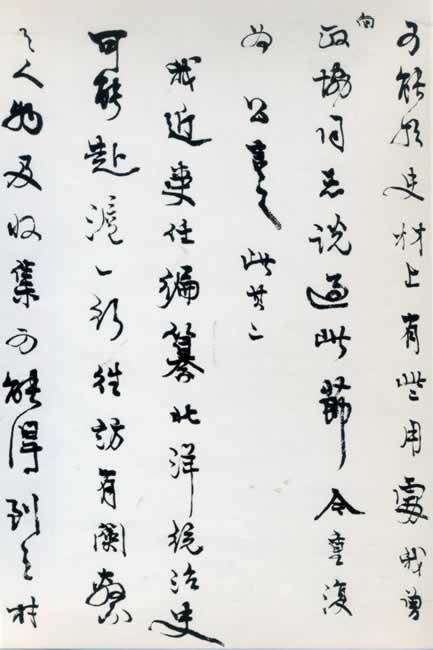 可能於史材上有些用處我曾
向政協同志說過此節今重復
為公言之此其二
我近任編纂北洋統治史
可能赴滬一行往訪有關繫
之人物及收集可能得到之材